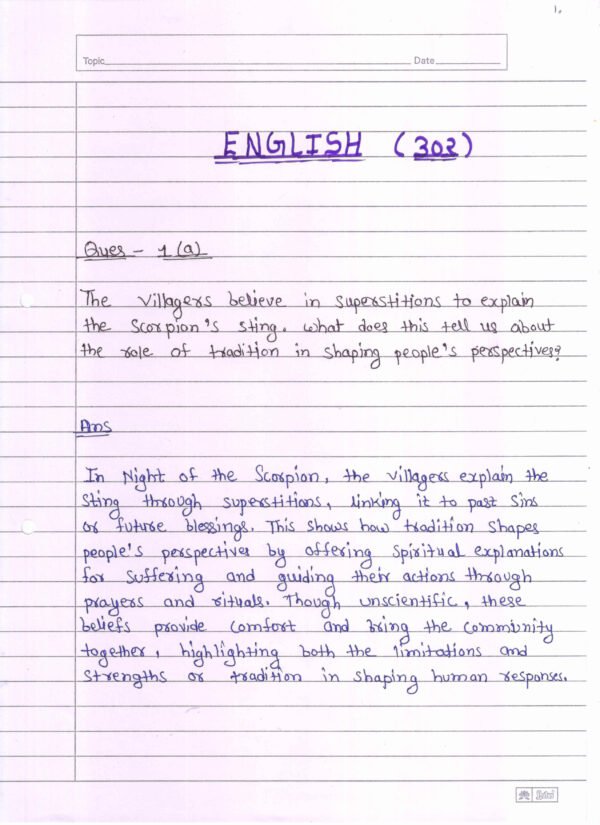 1.
Topic Date
ENGLISH (302)
Ques - 1 (a)
The villagers believe in superstitions to explain
the Scorpion's sting. What does this tell us about
the role of tradition in shaping people's perspectives?
Ans
In Night of the Scorpion, the villagers explain the
sting through superstitions, linking it to past sins
or future blessings. This shows how tradition shapes
people's perspectives by offering spiritual explanations
for suffering and guiding their actions through
prayers and rituals. Though unscientific, these
beliefs provide comfort and bring the community
together, highlighting both the limitations and
strengths of tradition in shaping human responses.